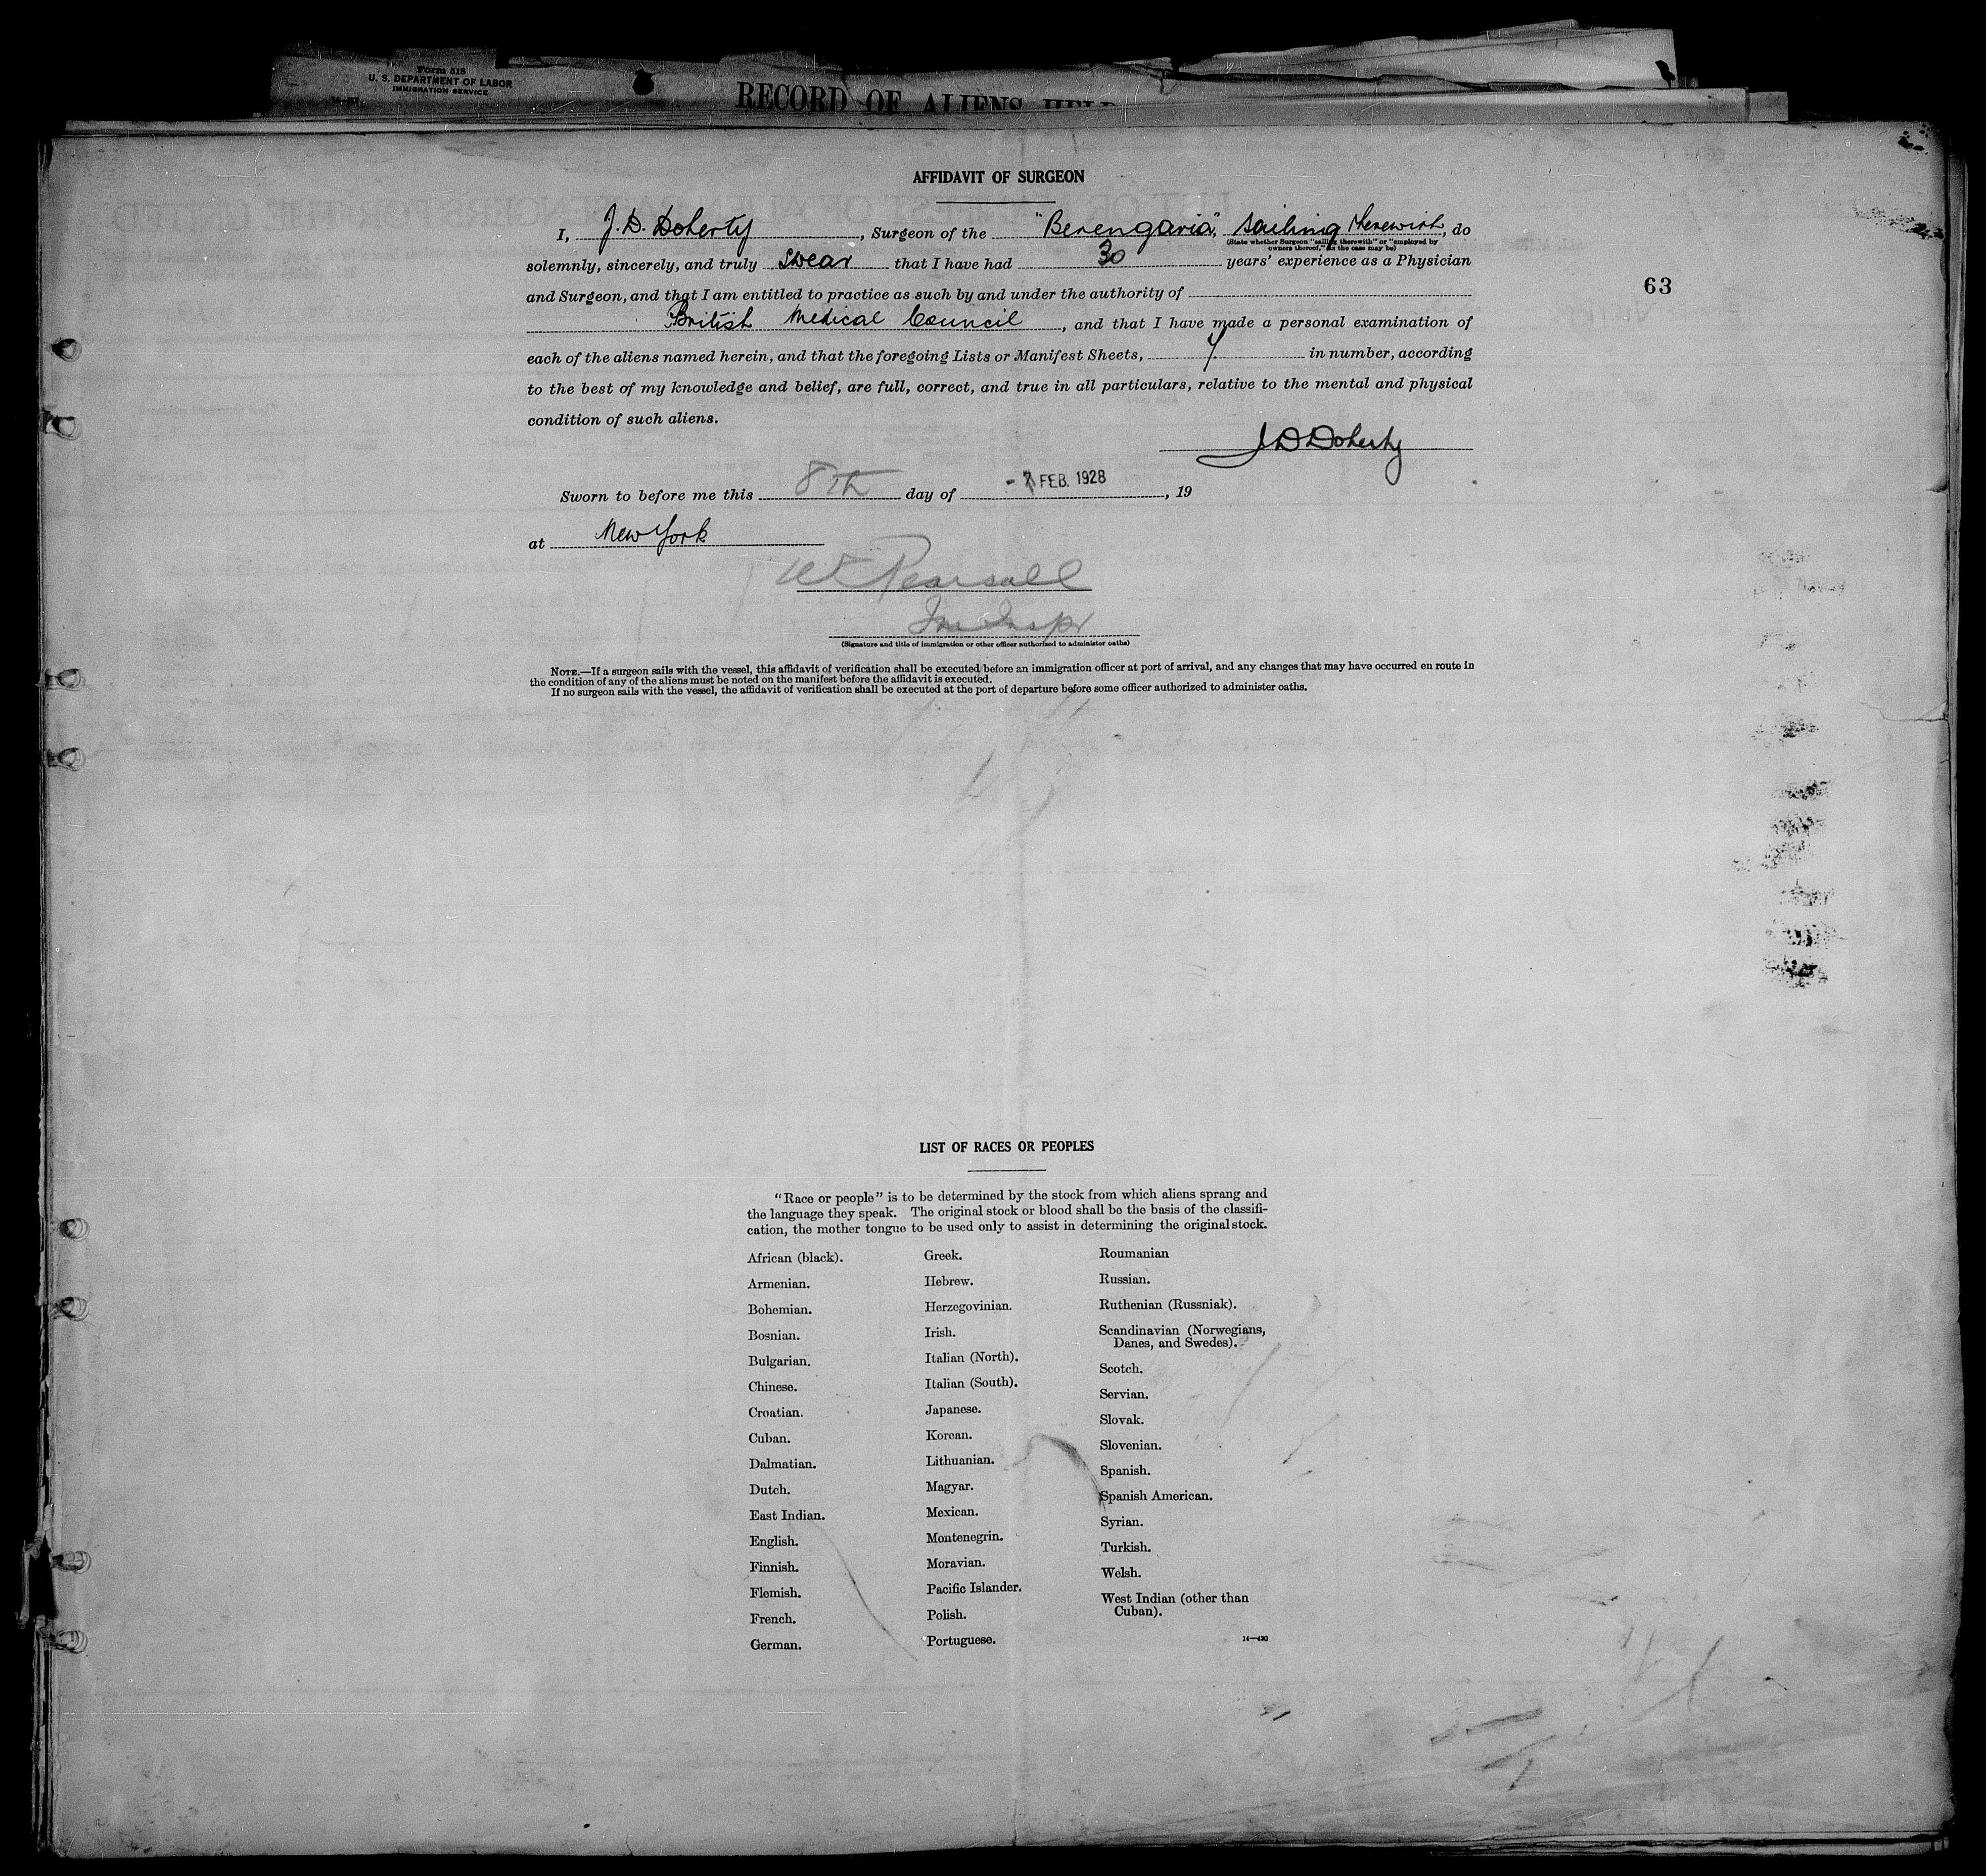 Form 518
U. S. DEPARTMENT OF LABOR
IMMIGRATION SERVICE
RECORD OF ALIENS HELD
AFFIDAVIT OF SURGEON
I, J. D. Doherty, Surgeon of the "Berengaria", sailing therewith, do
(State whether Surgeon "sailing therewith" or "employed by
owners thereof," as the case may be)
solemnly, sincerely, and truly swear that I have had 30 years' experience as a Physician
63
and Surgeon, and that I am entitled to practice as such by and under the authority of
British Medical Council, and that I have made a personal examination of
each of the aliens named herein, and that the foregoing Lists or Manifest Sheets, in number, according
to the best of my knowledge and belief, are full, correct, and true in all particulars, relative to the mental and physical
condition of such aliens.
J D Doherty
Sworn to before me this 8th day of - 7 FEB. 1928, 19
at New York
W Pearsall
Im Inspr
(Signature and title of immigration or other officer authorized to administer oaths)
NOTE.—If a surgeon sails with the vessel, this affidavit of verification shall be executed before an immigration officer at port of arrival, and any changes that may have occurred en route in
the condition of any of the aliens must be noted on the manifest before the affidavit is executed.
If no surgeon sails with the vessel, the affidavit of verification shall be executed at the port of departure before some officer authorized to administer oaths.
LIST OF RACES OR PEOPLES
"Race or people" is to be determined by the stock from which aliens sprang and
the language they speak. The original stock or blood shall be the basis of the classifi-
cation, the mother tongue to be used only to assist in determining the original stock.
African (black).
Armenian.
Bohemian.
Bosnian.
Bulgarian.
Chinese.
Croatian.
Cuban.
Dalmatian.
Dutch.
East Indian.
English.
Finnish.
Flemish.
French.
German.
Greek.
Hebrew.
Herzegovinian.
Irish.
Italian (North).
Italian (South).
Japanese.
Korean.
Lithuanian.
Magyar.
Mexican.
Montenegrin.
Moravian.
Pacific Islander.
Polish.
Portuguese.
Roumanian
Russian.
Ruthenian (Russniak).
Scandinavian (Norwegians,
Danes, and Swedes).
Scotch.
Servian.
Slovak.
Slovenian.
Spanish.
Spanish American.
Syrian.
Turkish.
Welsh.
West Indian (other than
Cuban).
14—430